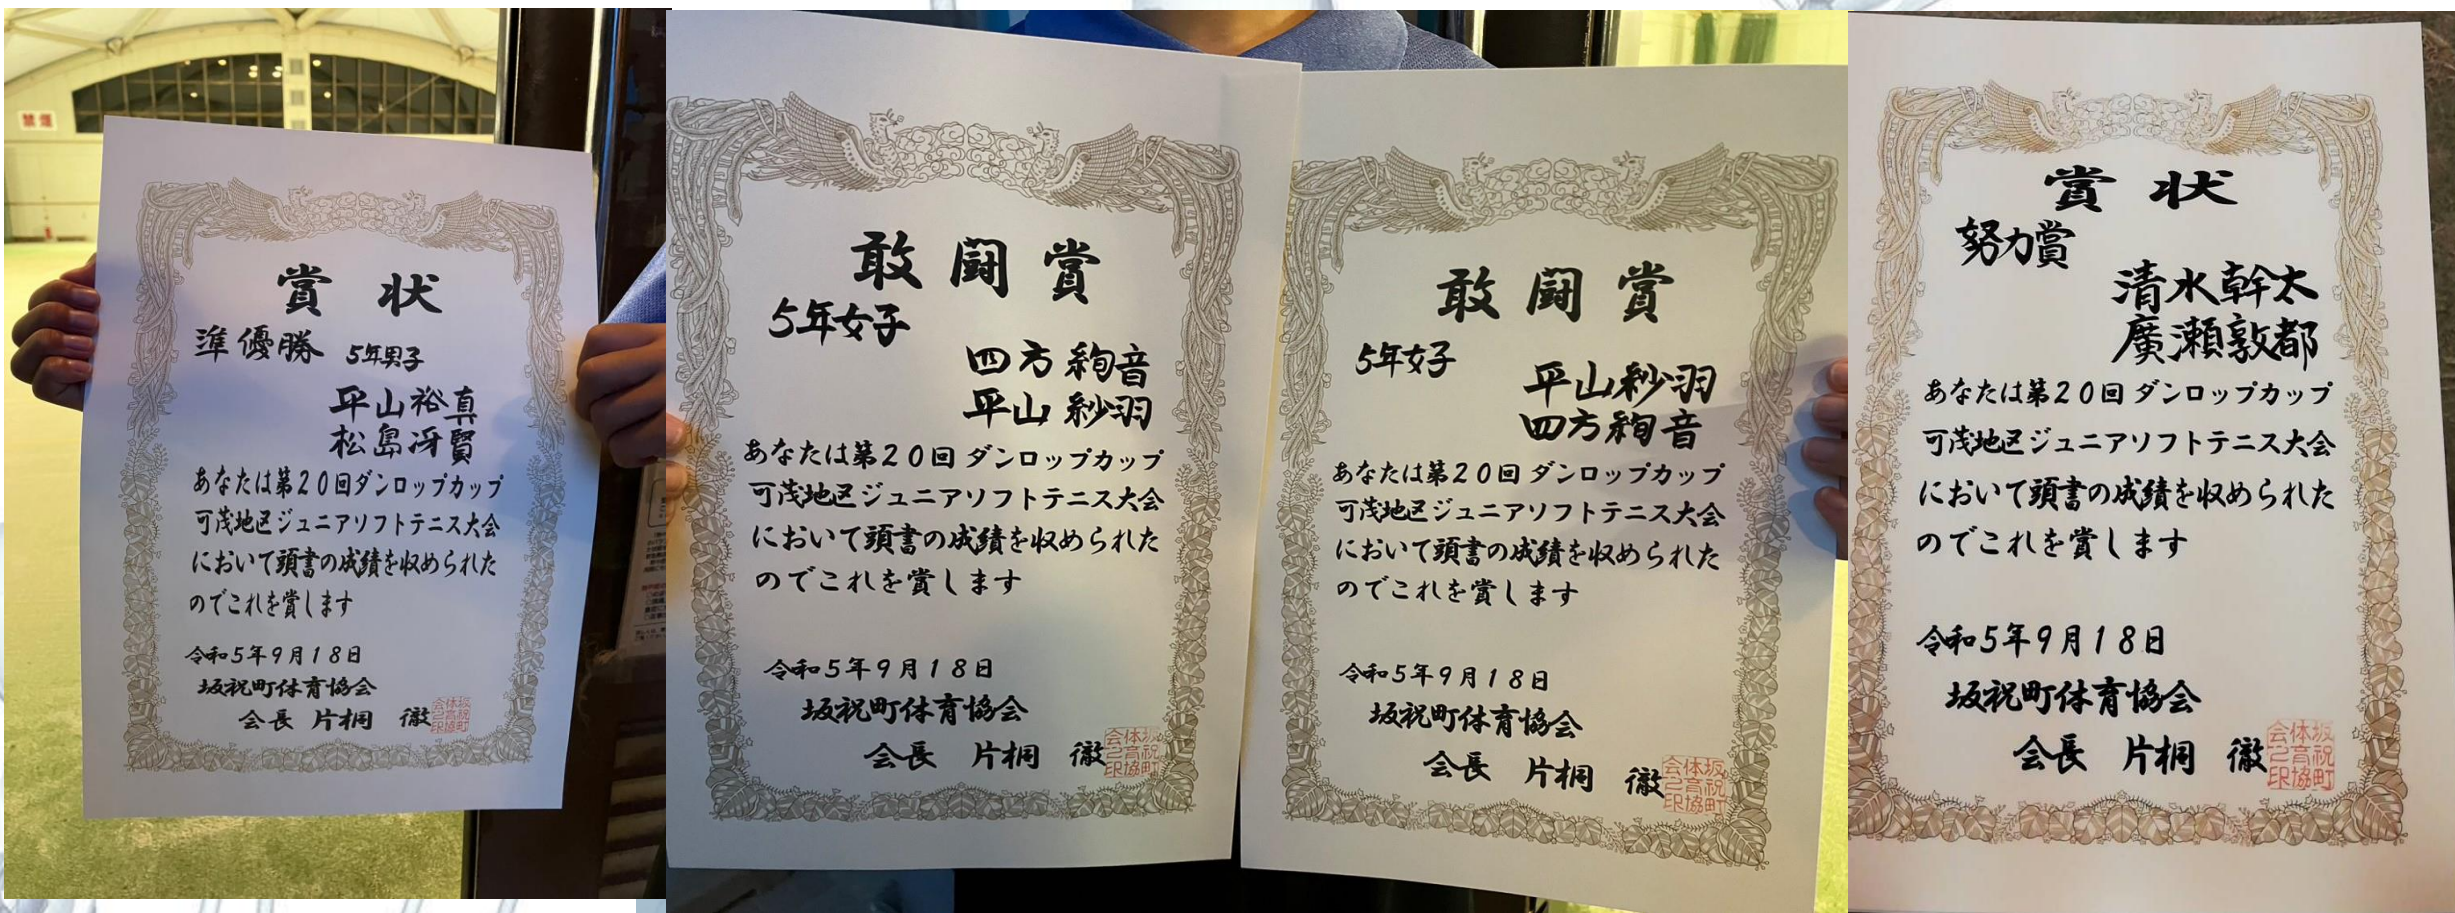 禁煙
賞状
準優勝 5年男子
平山裕真
松島冴賢
あなたは第20回ダンロップカップ
可茂地区ジュニアソフトテニス大会
において頭書の成績を収められた
のでこれを賞します
令和5年9月18日
坂祝町体育協会
会長 片桐 徹
敢闘賞
5年女子
四方絢音
平山紗羽
あなたは第20回ダンロップカップ
可茂地区ジュニアソフトテニス大会
において頭書の成績を収められた
のでこれを賞します
令和5年9月18日
坂祝町体育協会
会長 片桐 徹
敢闘賞
5年女子
平山紗羽
四方絢音
あなたは第20回ダンロップカップ
可茂地区ジュニアソフトテニス大会
において頭書の成績を収められた
のでこれを賞します
令和5年9月18日
坂祝町体育協会
会長 片桐 徹
賞状
努力賞
清水幹太
廣瀬敦都
あなたは第20回ダンロップカップ
可茂地区ジュニアソフトテニス大会
において頭書の成績を収められた
のでこれを賞します
令和5年9月18日
坂祝町体育協会
会長 片桐 徹